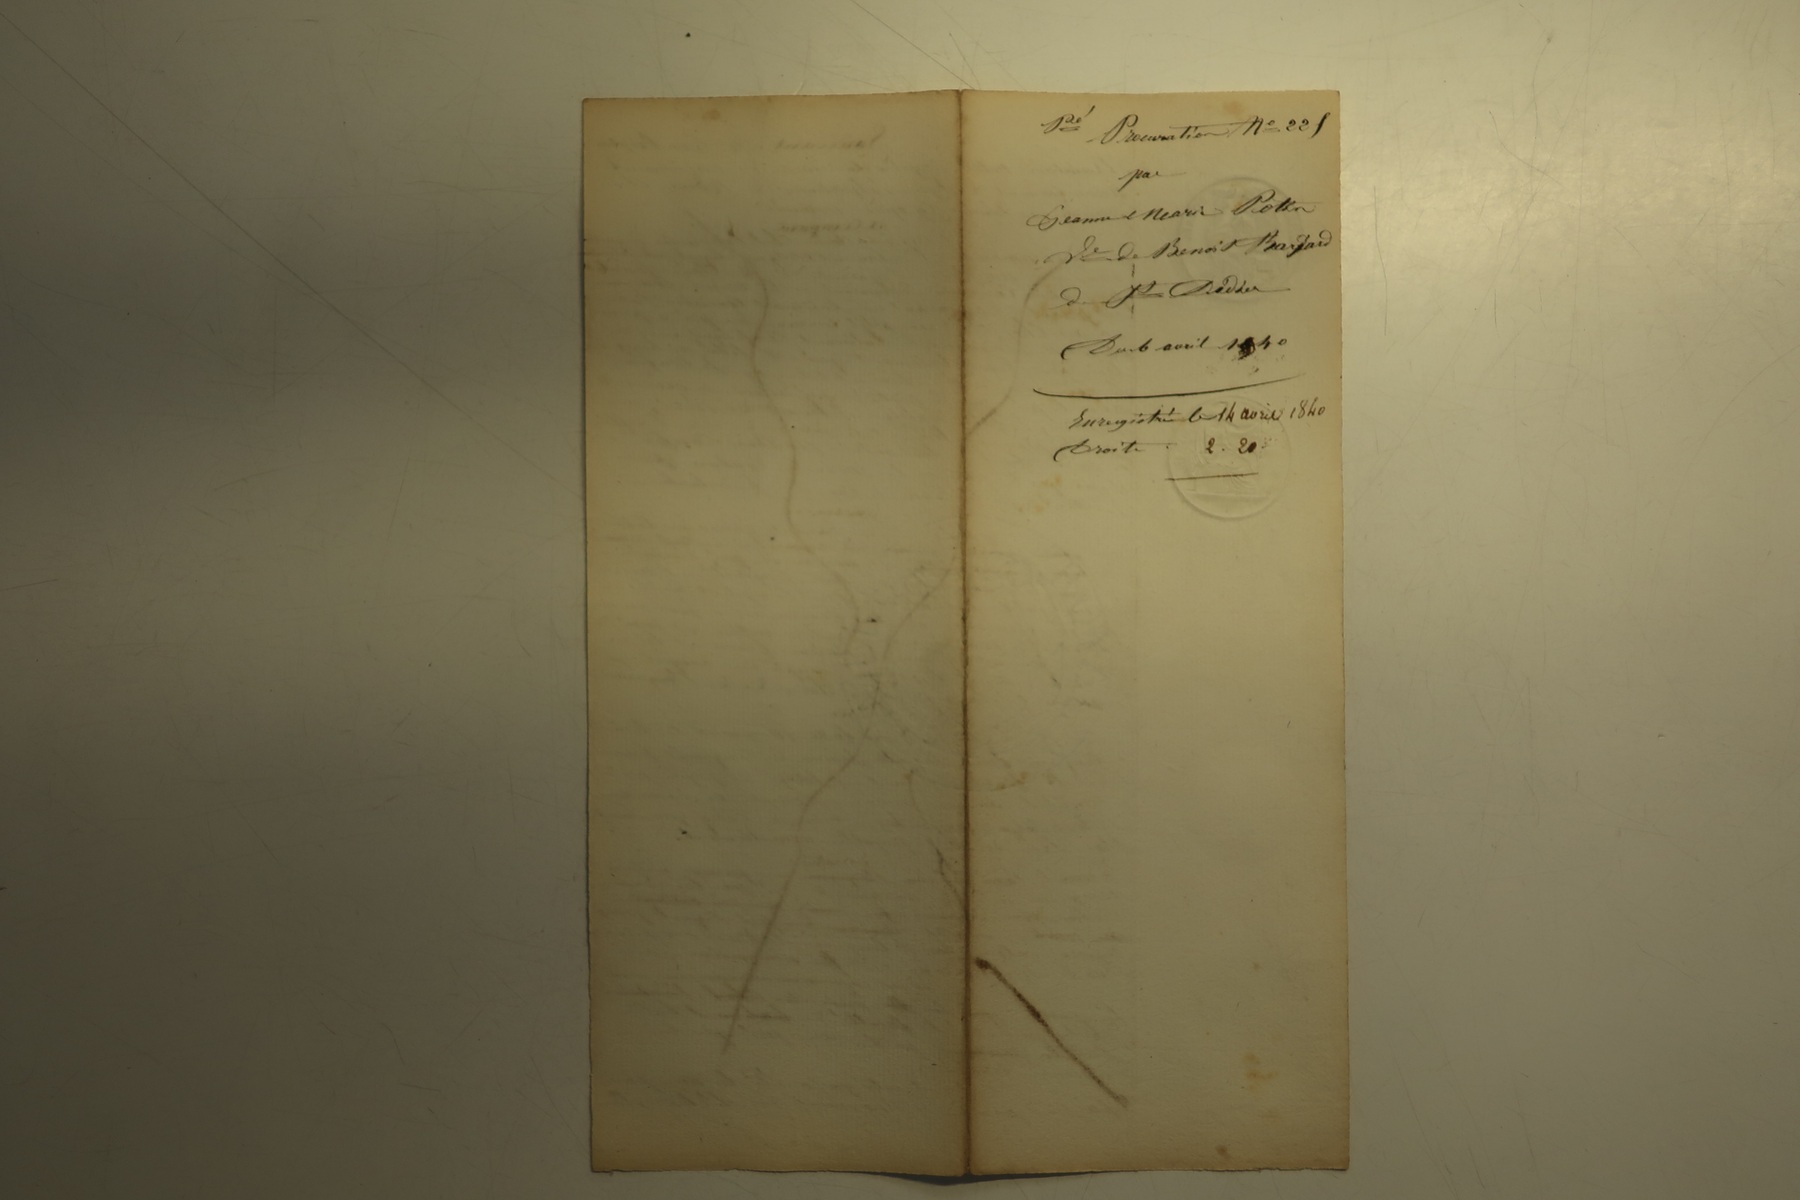 Procuration N° 225
par
Jeanne Marie Pothin
Ve de Benoit Barjard
de St Didier
Du 6 avril 1840
Enregistré le 14 avril 1840
Droits 2. 20